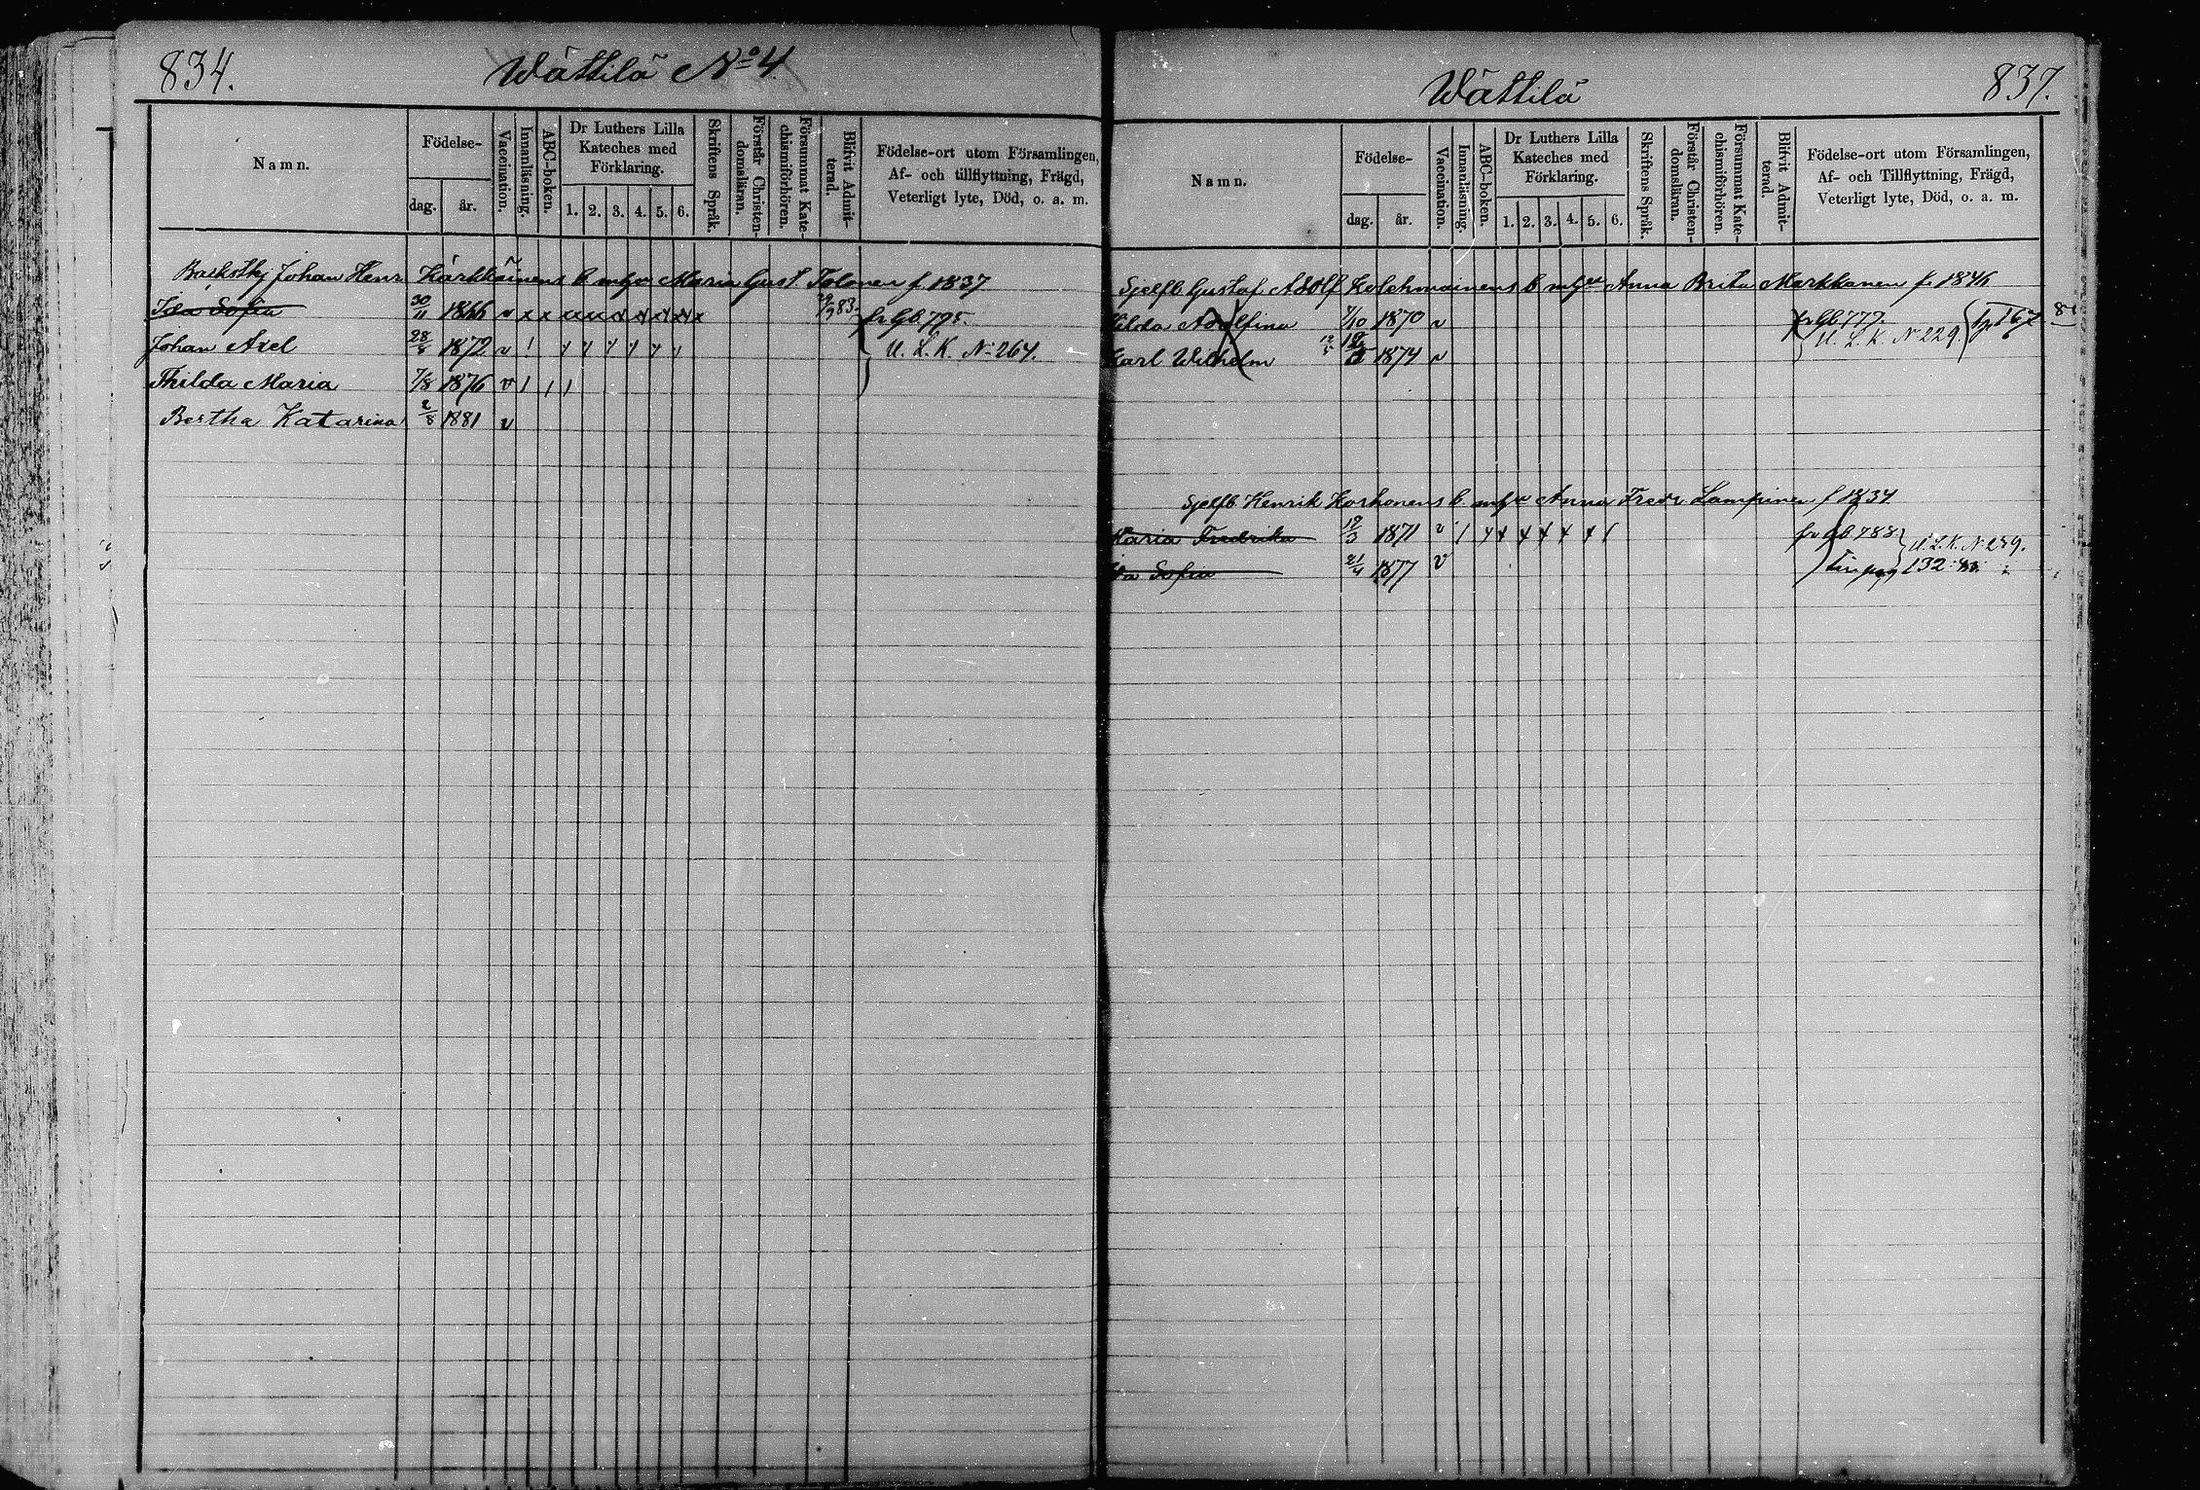 834.
Wättilä No 4
Namn.
Födelse-
dag.
år.
Vaccination.
Innanläsning.
ABC-boken.
Dr Luthers Lilla Kateches med Förklaring.
1. 2. 3. 4. 5. 6.
Skriftens Språk.
Förstår Christen-domsläran.
Försummat Kate-chismiförhören.
Blifvit Admit-terad.
Födelse-ort utom Församlingen,
Af- och tillflyttning, Frägd,
Veterligt lyte, Död, o. a. m.
Johan Henr Kärkkäinens b m hu Maria Gust. Tolonen f. 1837
Ida Sofia 30/11 1866 v x x x x x x x x x 83. fr Gb. 795.
Johan Axel 28/8 1872 v U. L. K. No 264.
Thilda Maria 7/8 1876 v
Bertha Katarina 2/8 1881 v
Wättilä
837.
Namn.
Födelse-
dag.
år.
Vaccination.
Innanläsning.
ABC-boken.
Dr Luthers Lilla Kateches med Förklaring.
1. 2. 3. 4. 5. 6.
Skriftens Språk.
Förstår Christen-domsläran.
Försummat Kate-chismiförhören.
Blifvit Admit-terad.
Födelse-ort utom Församlingen,
Af- och Tillflyttning, Frägd,
Veterligt lyte, Död, o. a. m.
Sjelfb. Gustaf Adolf Kolehmainens b m hu Anna Brita Markkanen f. 1846
Hilda Adolfina 7/10 1870 v fr Gb 777
Karl Wilhelm 12/5 1874 v U. L. K. No 229.
Sjelfb. Henrik Korhonens b m hu Anna Fredr Lampinen f 1834
Maria Fredrika 12/3 1871 v fr Gb 783
Ida Sofia 21/4 1877 v 132